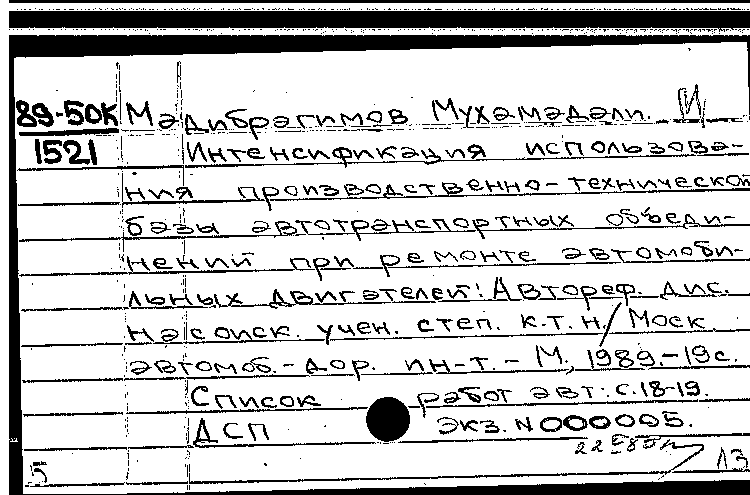 89-50К Мадибрагимов Мухамадали. И
1521 Интенсификация использова-
ния производственно-технической
базы автотранспортных объеди-
нений при ремонте автомоби-
льных двигателей: Автореф. дис.
на соиск. учен. степ. к.т.н/ Моск.
автомоб.-дор. ин-т. - М., 1989.-19с.
Список работ авт: с.18-19.
ДСП экз. N000005.
5 13